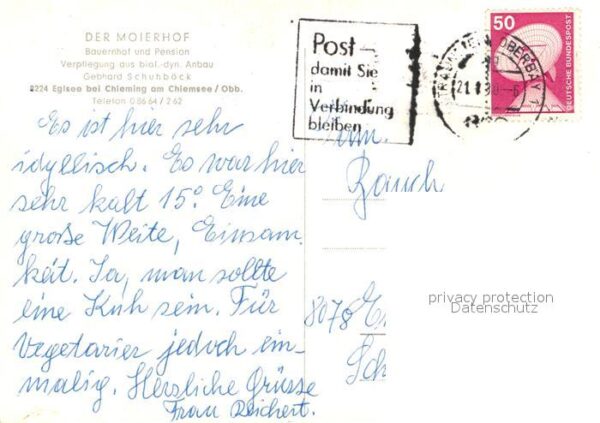 DER MOIERHOF
Bauernhof und Pension
Verpflegung aus biol.-dyn. Anbau
Gebhard Schuhböck
8224 Egisee bei Chieming am Chiemsee / Obb.
Telefon 0 86 64 / 2 62
Es ist hier sehr
idyllisch. Es war hier
sehr kalt 15°. Eine
große Weite, Einsam-
keit. Ja, man sollte
eine Kuh sein. Für
Vegetarier jedoch ein-
malig. Herzliche Grüsse
Frau Reichert.
Post
damit Sie
in
Verbindung
bleiben
OBERBAY
50
DEUTSCHE BUNDESPOST
Fam.
Rauch
8078
privacy protection
Datenschutz